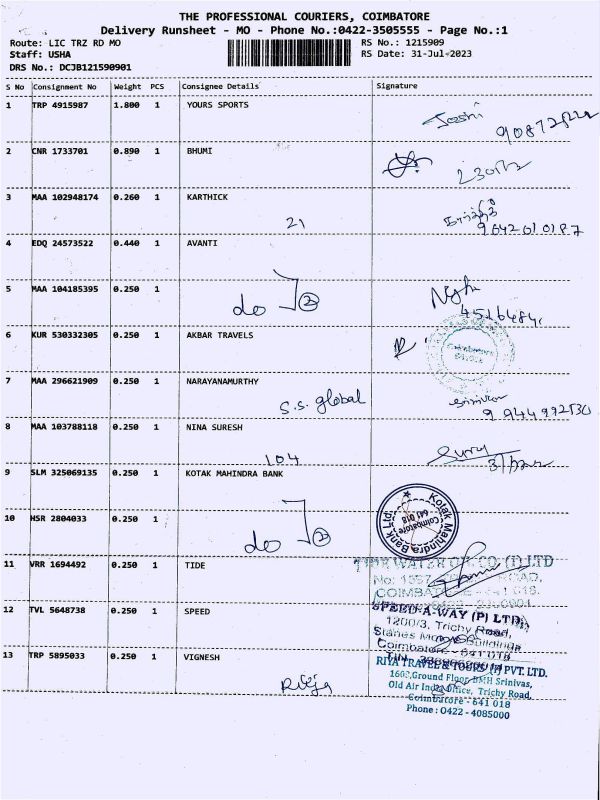 THE PROFESSIONAL COURIERS, COIMBATORE
Delivery Runsheet - MO - Phone No.:0422-3505555 - Page No.:1
Route: LIC TRZ RD MO RS No.: 1215909
Staff: USHA RS Date: 31-Jul-2023
DRS No.: DCJB121590901
S No Consignment No Weight PCS Consignee Details Signature
1 TRP 4915987 1.800 1 YOURS SPORTS
2 CNR 1733701 0.890 1 BHUMI
3 MAA 102948174 0.260 1 KARTHICK
21
4 EDQ 24573522 0.440 1 AVANTI
5 MAA 104185395 0.250 1
do 2
6 KUR 530332305 0.250 1 AKBAR TRAVELS
7 MAA 296621909 0.250 1 NARAYANAMURTHY
S.S. global
8 MAA 103788118 0.250 1 NINA SURESH
104
9 SLM 325069135 0.250 1 KOTAK MAHINDRA BANK
Kotak Mahindra Bank Ltd.
Coimbatore
641 018
10 HSR 2804033 0.250 1
do 2
11 VRR 1694492 0.250 1 TIDE
TIDE WATER OIL CO (I) LTD
ROAD,
COIMBATORE - 641 018.
12 TVL 5648738 0.250 1 SPEED
SPEED-A-WAY (P) LTD.,
1200/3, Trichy Road,
Stanes Buildings
Coimbatore - 641 018
13 TRP 5895033 0.250 1 VIGNESH
RIYA TRAVEL & TOURS (I) PVT. LTD.
Ground Floor Srinivas,
Old Air India Office, Trichy Road,
Coimbatore - 641 018
Phone : 0422 - 4085000